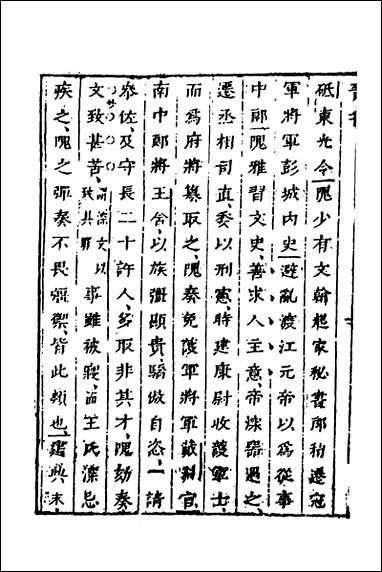 砥東光令隗少有文翰起家秘書郎稍遷冠
軍將軍彭城內史避亂渡江元帝以爲從事
中郎隗雅習文史善求人主意帝深器遇之、
遷丞相司直、委以刑憲時建康尉收護軍士
而爲府將篡取之、隗奏免護軍將軍戴淵官、
南中郎將王含、以族彊顯貴、驕傲自恣、一請
參佐、及守長二十許人、多取非其才、隗劾奏
文致甚苦、謂深文以致其罪事雖被寢、而王氏深忌
疾之、隗之彈奏不畏彊禦、皆此類也、建興末、